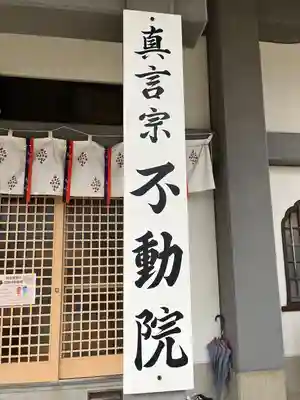 真言宗不動院